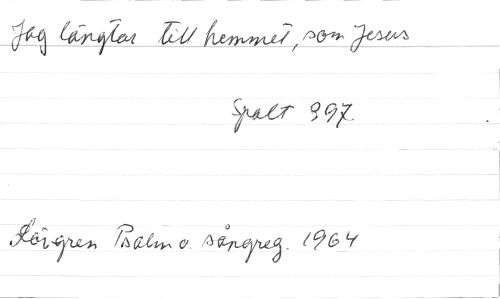 Jag längtar till hemmet, som Jesus
Spalt 397.
Lövgren Psalm o. sångreg. 1964